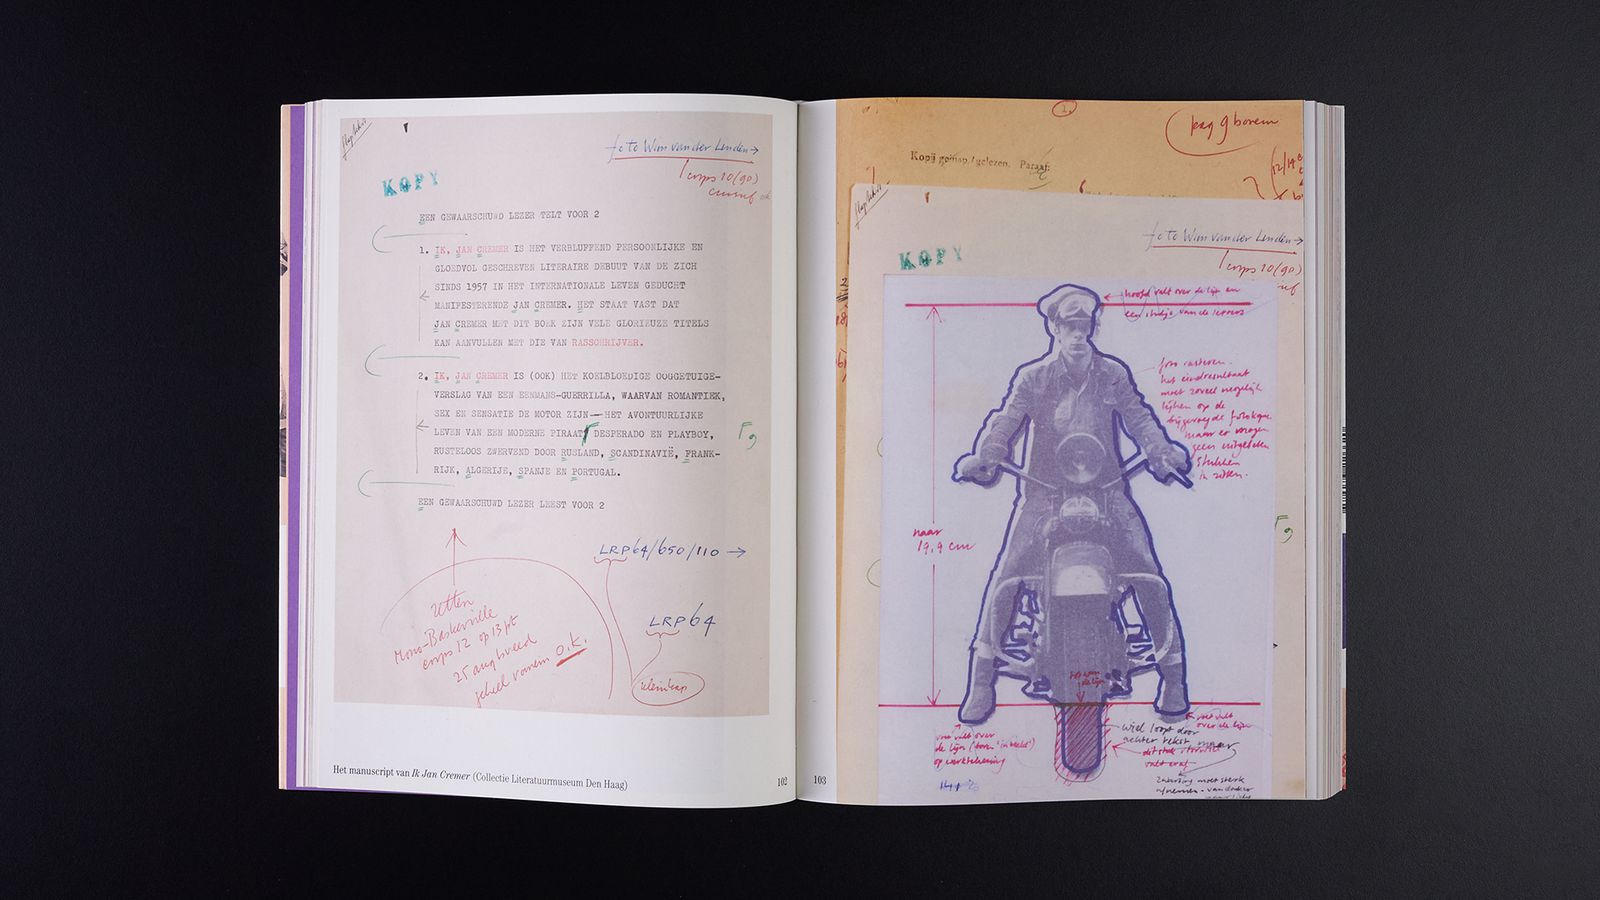 foto Wim van der Linden →
corps 10 (90)
cursief
KOPY
EEN GEWAARSCHUWD LEZER TELT VOOR 2
1. IK, JAN CREMER IS HET VERBLUFFEND PERSOONLIJKE EN
GLOEDVOL GESCHREVEN LITERAIRE DEBUUT VAN DE ZICH
SINDS 1957 IN HET INTERNATIONALE LEVEN GEDUCHT
MANIFESTERENDE JAN CREMER. HET STAAT VAST DAT
JAN CREMER MET DIT BOEK ZIJN VELE GLORIEUZE TITELS
KAN AANVULLEN MET DIE VAN RASSCHRIJVER.
2. IK, JAN CREMER IS (OOK) HET KOELBLOEDIGE OOGGETUIGE-
VERSLAG VAN EEN EENMANS-GUERRILLA, WAARVAN ROMANTIEK,
SEX EN SENSATIE DE MOTOR ZIJN—HET AVONTUURLIJKE
LEVEN VAN EEN MODERNE PIRAAT, DESPERADO EN PLAYBOY,
RUSTELOOS ZWERVEND DOOR RUSLAND, SCANDINAVIË, FRANK-
RIJK, ALGERIJE, SPANJE EN PORTUGAL.
EEN GEWAARSCHUWD LEZER LEEST VOOR 2
LRP64/650/110 →
LRP64
kleinkap
zetten
Mono-Baskerville
corps 12 op 13 pt
25 aug breed
geheel romein O.K.
Het manuscript van Ik Jan Cremer (Collectie Literatuurmuseum Den Haag)
102
103
1.
pag 9 boven
Kopij geïnap./gelezen. Paraaf:
foto Wim van der Linden →
corps 10 (90)
KOPY
hoofd valt over de lijn en
een stukje van de letters
foto rasteren.
het eindresultaat
moet zoveel mogelijk
lijken op de
bijgevoegde fotokopie
maar er mogen
geen uitgebeten
stukken
in zitten.
naar
19,9 cm
voet valt
over de lijn
voet valt over
de lijn
op werktekening
wiel loopt door
achter tekst